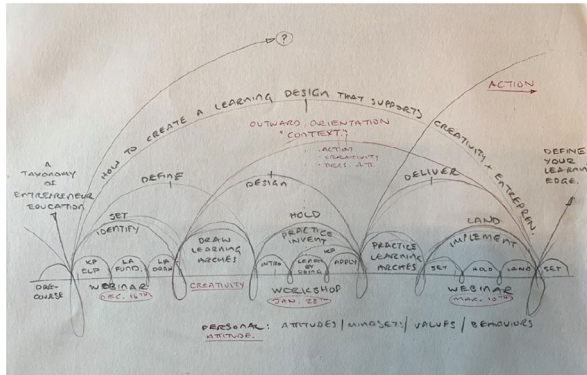 ?
ACTION
HOW TO CREATE A LEARNING DESIGN THAT SUPPORTS CREATIVITY + ENTREPREN.
OUTWARD ORIENTATION
"CONTEXT"
• ACTION
• CREATIVITY
A
TAXONOMY
OF
ENTREPRENEUR
EDUCATION
DEFINE
YOUR
LEARNING
EDGE.
DEFINE
DESIGN
DELIVER
SET
IDENTIFY
DRAW
LEARNING
ARCHES
HOLD
PRACTICE
INVENT
PRACTICE
LEARNING
ARCHES
LAND
IMPLEMENT
KP
CLP
LA
FUND.
LA
DRAW
INTRO
LEARN
BY
DOING
KP
APPLY
SET
HOLD
LAND
SET
PRE-
COURSE
WEBINAR
DEC. 16TH
CREATIVITY
WORKSHOP
JAN. 28TH
WEBINAR
MAR. 10TH
PERSONAL: ATTITUDES / MINDSETS / VALUES / BEHAVIORS
ATTITUDE.